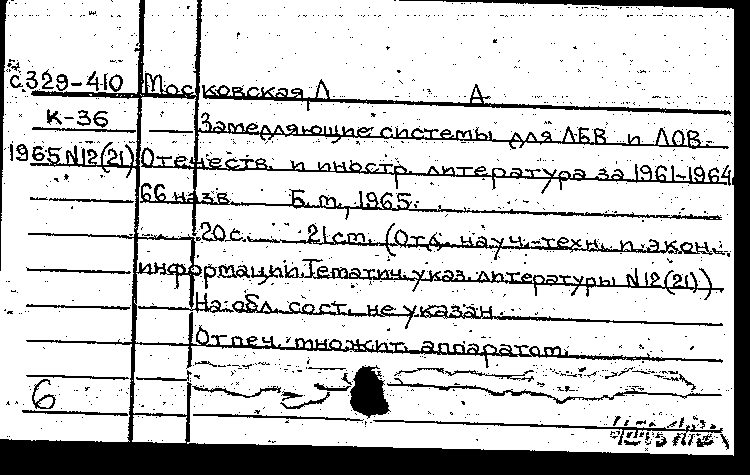 с.329-410 Московская, Л А
К-36 Замедляющие системы для ЛБВ и ЛОВ.
1965 N12(21) Отечеств. и иностр. литература за 1961-1964
66 назв. Б.м., 1965.
20с. 21см. (Отд. науч.-техн. и экон.
информации. Тематич. указ. литературы N12(21))
На обл. сост. не указан.
Отпеч. множит. аппаратом.
6